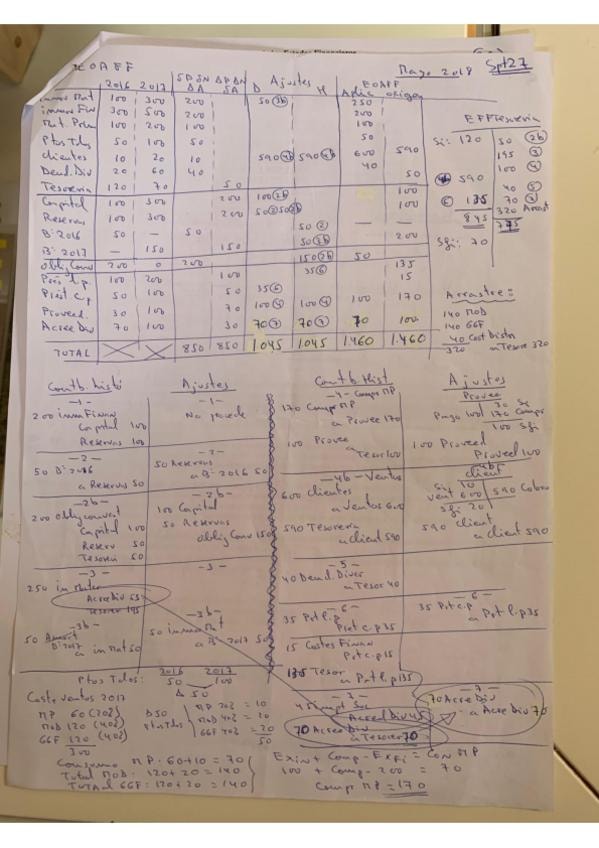 EOAFF Mayo 2018 Spt27
2016 2017 ΔA D Ajustes H EOAFF
Aplic. origen
Inmov Mat 100 300 200 50 (3b) 250
inmov Fin 300 500 200 200
100 200 100 100
Ptos Tdos 50 100 50 50
clientes 10 20 10 590 (4b) 590 (4b) 600 590
Deud. Div 20 60 40 40
Tesorería 120 70 50 50
Capital 100 300 200 100 (2b) 100
Reservas 100 300 200 100
Bº 2016 50 — 50 50 (2) — —
Bº 2017 — 150 150 50 (3b) 200
Oblig Conv 200 0 200 150 (2b) 50
Prés l.p. 100 200 100 35 (6) 135
Prést c.p 50 100 50 35 (6) 15
Proveed. 30 100 70 100 (4) 100 (4) 100 170
Acree Div 70 100 30 70 (7) 70 (7) 70 100
TOTAL 850 850 1.045 1.045 1.460 1.460
EF Tesorería
Si: 120 50 (2b)
195 (3)
100 (4)
590
40 (5)
135 70 (7)
320 Arrast
845 775
Sfi: 70
Arrastre =
140 MOD
140 GGF
40 Cost Distn
320 a Tesor 320
Contb. histó Ajustes
-1- -1-
200 inmov Finan No procede
Capital 100
Reservas 100
-2- -2-
50 Bº 2016 50 Reservas
a Reservas 50 a Bº 2016 50
-2b- -2b-
200 oblig convert 100 Capital
Capital 100 50 Reservas
Reserv 50 oblig Conv 150
Tesorería 50
-3- -3-
250 in Mater
Acree Div 55
Tesorer 195
-3b- -3b-
50 Amort 50 inmov Mat
Bº 2017 a Bº 2017 50
a in mat 50
Contb. Hist Ajustes
-4- Compr MP Provee
170 Compr MP 30 Si
a Provee 170 Pago 100 170 Compr
100 Sfi
100 Provee 100 Proveed
a Tesor 100 Proveed 100
-4b- Ventas 4b client
600 clientes Si 10
a Ventas 600 Vent 600 590 Cobro
Sfi 20
590 Tesorería 590 client
a client 590 a client 590
-5-
40 Deud. Diver
a Tesor 40
-6- -6-
35 Pst l.p 35 Pst c.p
Prst c.p 35 a Pst l.p 35
15 Costes Finan
Pst c.p 15
135 Tesor
a Pst l.p 135
-7- -7-
45 Soc 70 Acree Div
Acree Div 45 a Acree Div 70
70 Acree Div
a Tesorer 70
2016 2017
Ptos Tdos: 50 100
Δ 50
Coste Ventas 2017
MP 60 (20%) MP 20% = 10
MOD 120 (40%) Δ 50 MOD 40% = 20
GGF 120 (40%) ptos Tdos GGF 40% = 20
300 50
Consumo MP: 60+10 = 70
Total MOD: 120+20 = 140
Total GGF: 120+20 = 140
Exin + Comp - Exfi = Con MP
100 + Comp - 200 = 70
Compr MP = 170